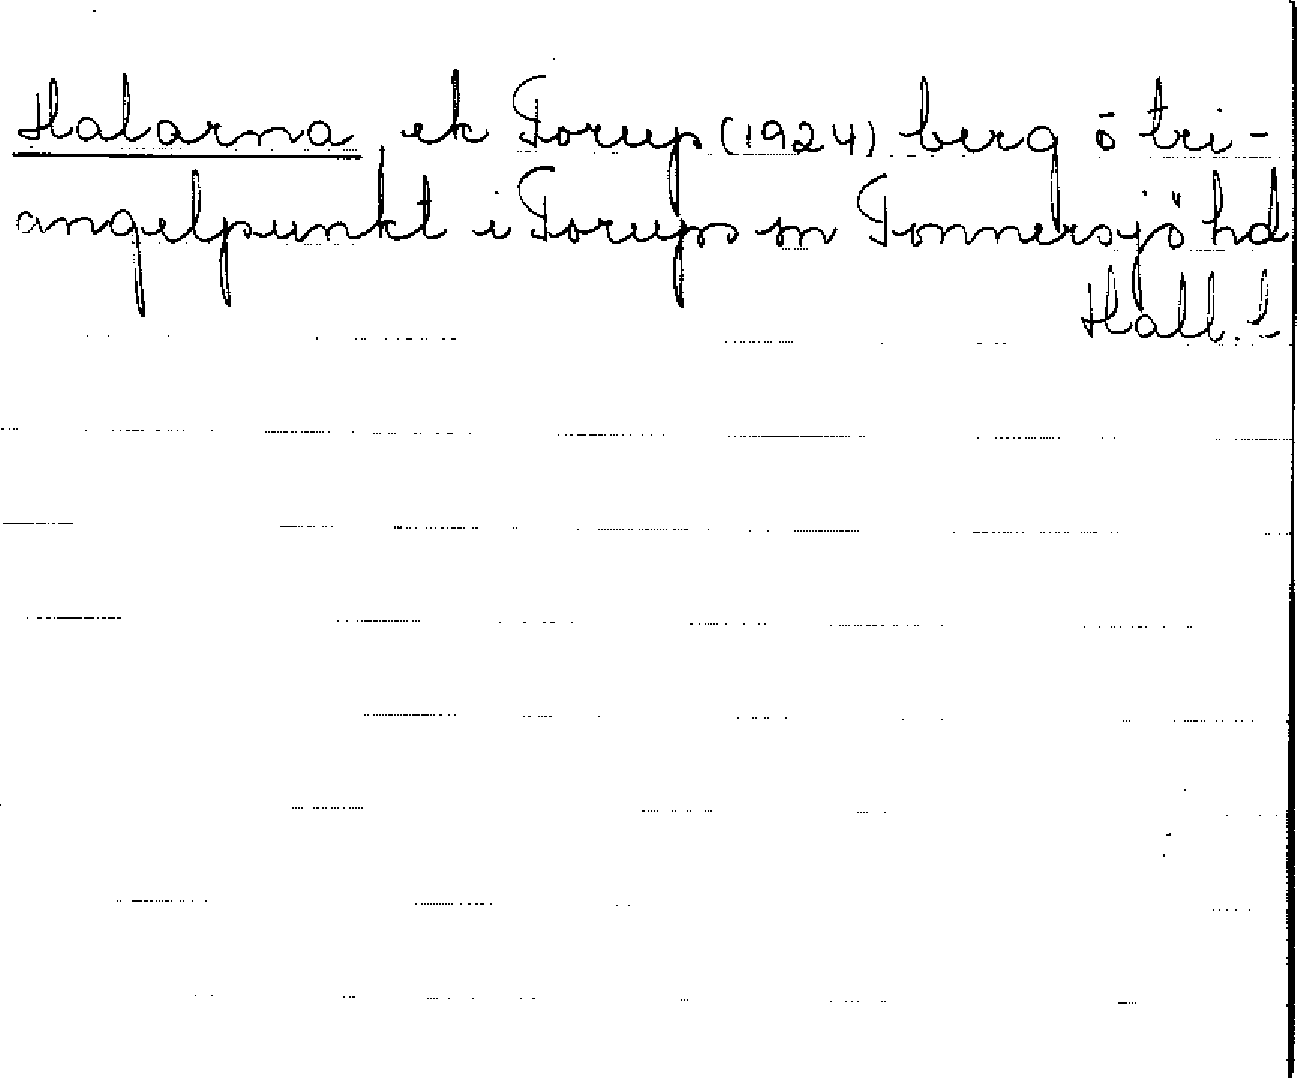 Halarna ek Torup (1924) berg ö tri-
angelpunkt i Torups sn Tönnersjö hd
Hall.!